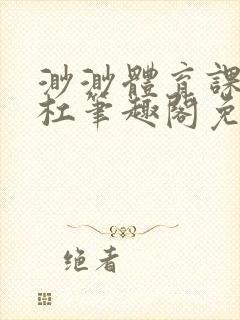 渺渺體育課
杜筆趣閣免
绝者